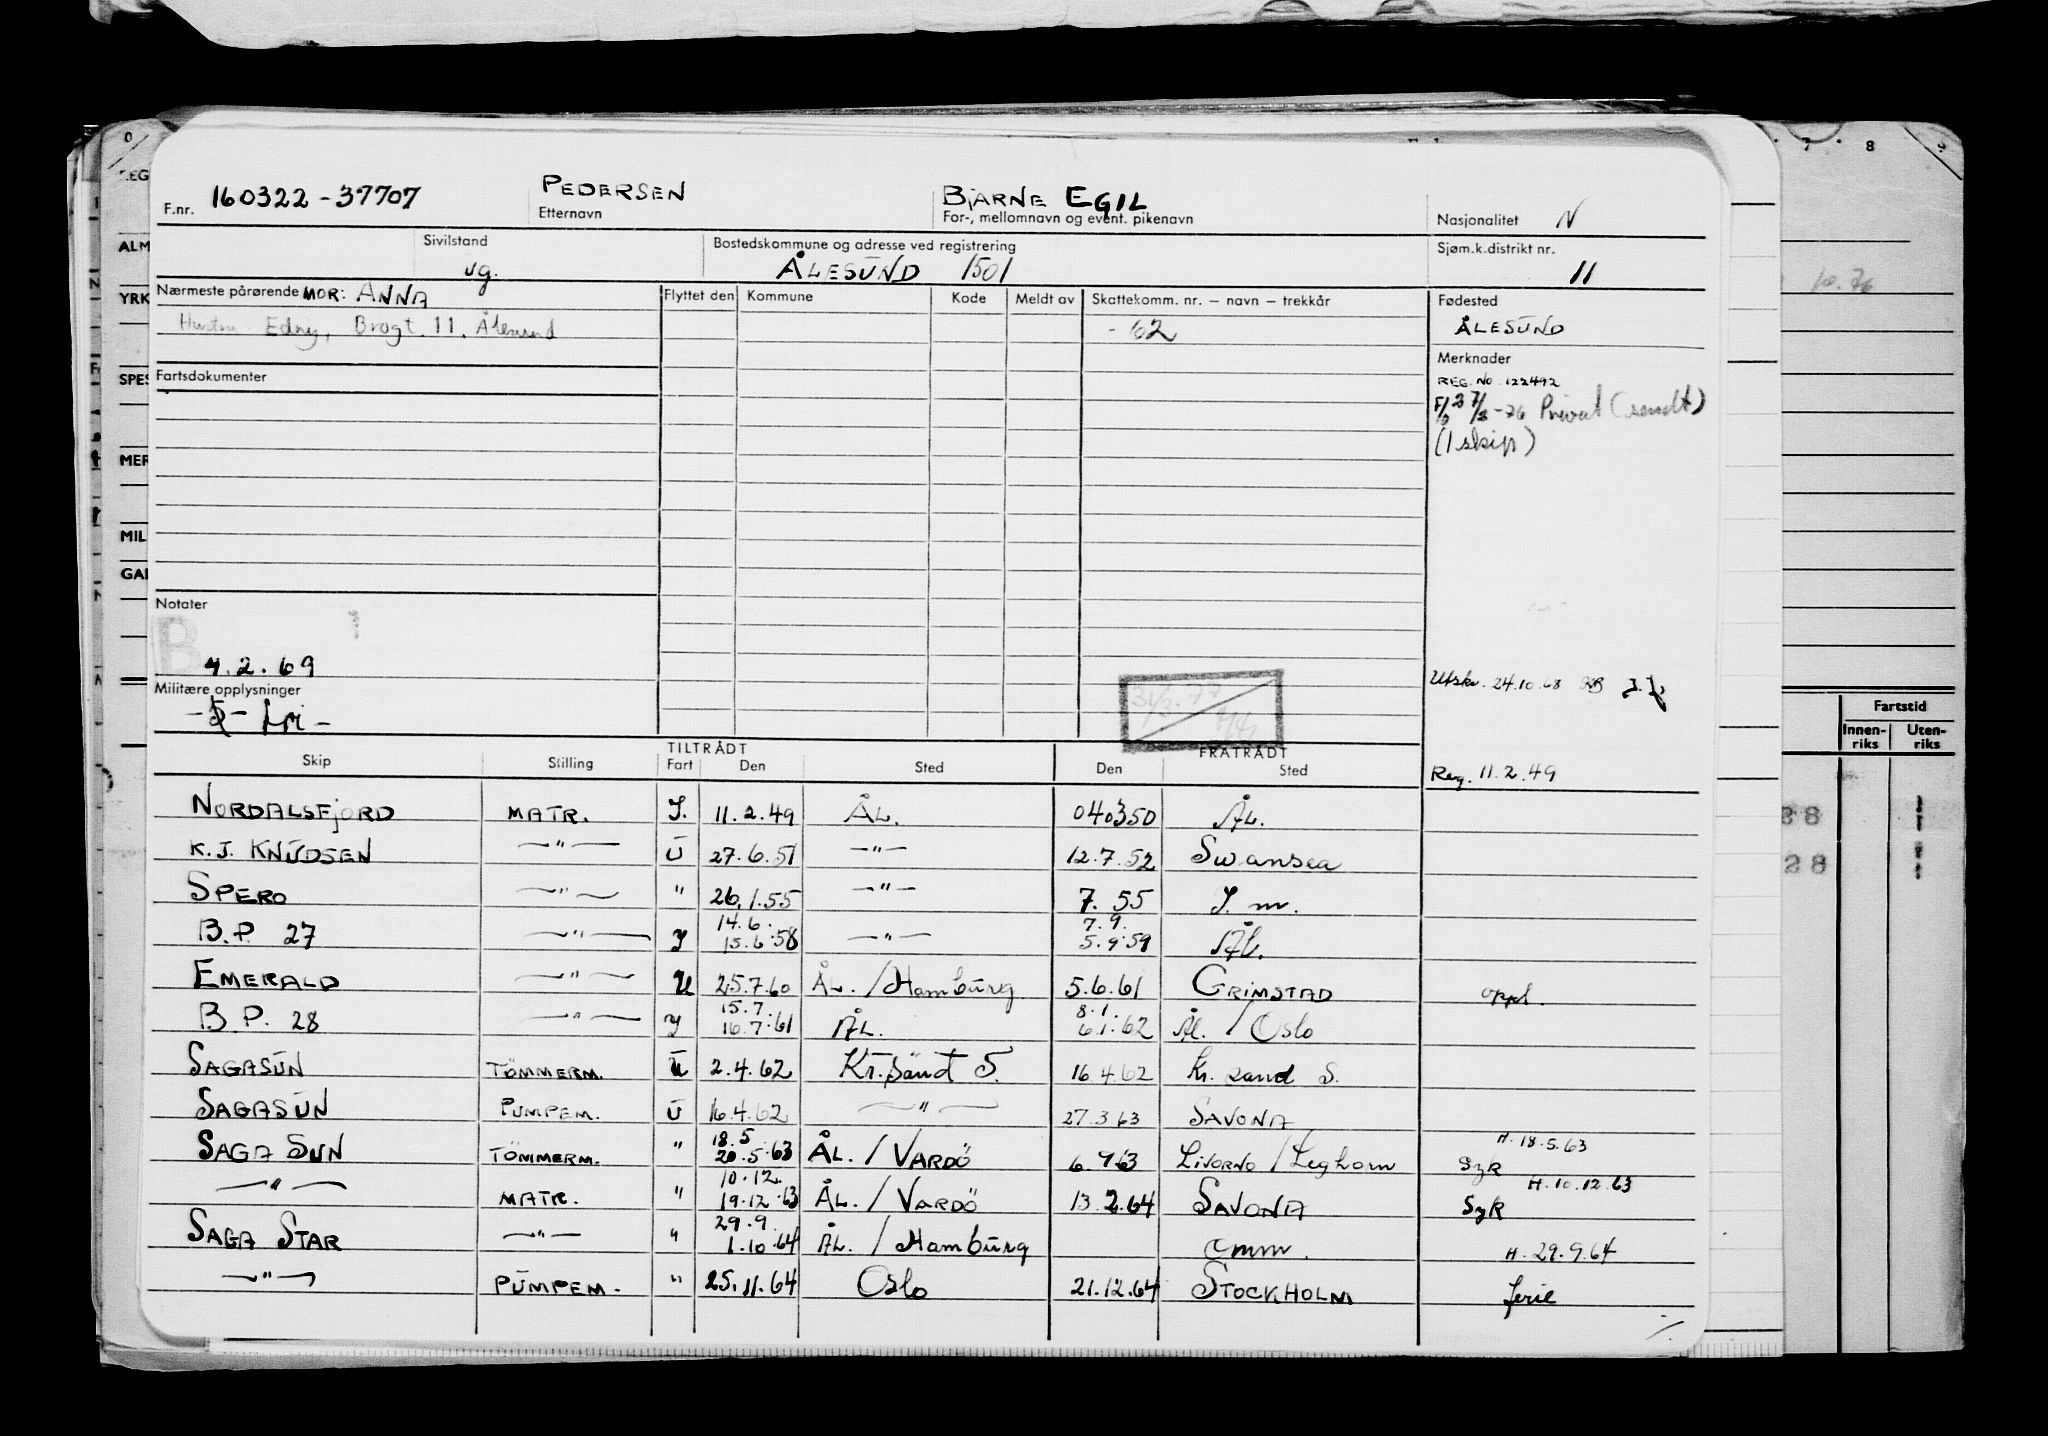 F.nr. 160322-37707
PEDERSEN
Etternavn
BJARNE EGIL
For-, mellomnavn og event. pikenavn
Nasjonalitet N
Sivilstand
ug.
Bostedskommune og adresse ved registrering
ÅLESUND 1501
Sjøm.k.distrikt nr.
11
Nærmeste pårørende MOR: ANNA
Hustru Edny, Brogt. 11. Ålesund
Flyttet den Kommune Kode Meldt av Skattekomm. nr. – navn – trekkår
- 62
Fødested
ÅLESUND
Merknader
REG. No. 122492
-76 Privat (sendt)
(1 skip)
Fartsdokumenter
Notater
B 1
4.2.69
Militære opplysninger
31/3.77
Utskr. 24.10.68
Reg. 11.2.49
Skip Stilling TILTRÅDT Fart Den Sted FRATRÅDT Den Sted
NORDALSFJORD MATR. I. 11.2.49 ÅL. 040350 ÅL.
K.J. KNUDSEN —"— U 27.6.51 —"— 12.7.52 Swansea
SPERO —"— " 26.1.55 —"— 7. 55 I. m.
14.6. 7.9.
B.P. 27 —"— I 15.6.58 —"— 5.9.59 ÅL.
EMERALD —"— U 25.7.60 ÅL. / Hamburg 5.6.61 GRIMSTAD oppl.
15.7. 8.1.
B.P. 28 —"— I 16.7.61 ÅL. 6.1.62 ÅL. / Oslo
SAGASUN TÖMMERM. U 2.4.62 Kr.sand S. 16.4.62 Kr. sand S.
SAGASUN PUMPEM. U 16.4.62 —"— 27.3.63 SAVONA
18.5 H. 18.5.63
SAGA SUN TÖMMERM. " 20.5.63 ÅL. / VARDÖ 6.9.63 LIVORNO / Leghorn SyK
10.12. H. 10.12.63
—"— MATR. " 19.12.63 ÅL. / VARDÖ 13.2.64 SAVONA SyK
29.9.
SAGA STAR —"— " 1.10.64 ÅL. / Hamburg omm. H. 29.9.64
—"— PUMPEM. " 25.11.64 Oslo 21.12.64 STOCKHOLM ferie
7 8 9
10.76
Fartstid
Innen-riks Uten-riks
28
28
ALM
YRK
SPES
MER
MIL